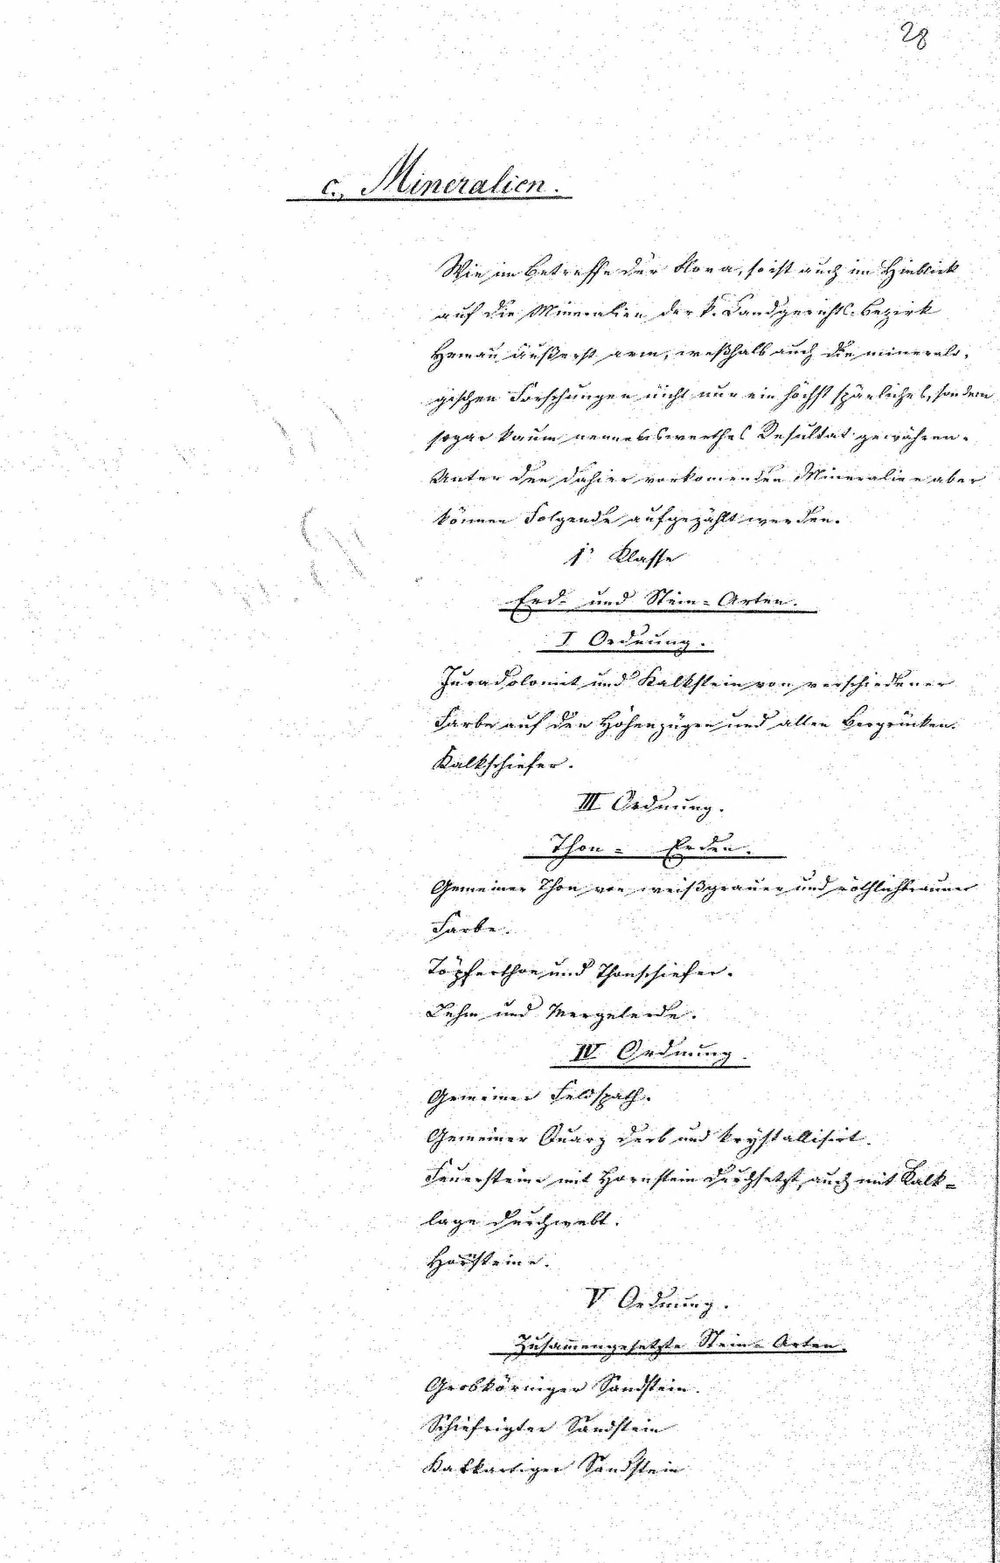 28
c., Mineralien.
Wie im Betreffe der Flora, so ist auch im Hinblick
auf die Mineralien der k. Landgerichts-Bezirk
Hemau äußerst arm, weßhalb auch die mineralo-
gischen Forschungen nicht nur ein höchst spärliches, sondern
sogar kaum nennenswerthes Resultat gewähren.
Unter den dahier vorkomenden Mineralien aber
können Folgende aufgezählt werden.
1. Klasse
Erd- und Stein-Arten.
I Ordnung.
Juradolomit und Kalkstein von verschiedener
Farbe auf den Höhenzügen und allen Bergrücken.
Kalkschiefer.
III Ordnung.
Thon- Erden.
Gemeiner Thon von weißgrauer und röthlichbrauner
Farbe.
Töpferthon und Thonschiefer.
Lehm und Mergelerde.
IV Ordnung.
Gemeiner Feldspath.
Gemeiner Quarz derb und krystallisirt.
Feuersteine mit Hornstein durchsetzt, auch mit Kalk-
lage durchwebt.
Hornsteine.
V Ordnung.
Zusammengesetzte Stein-Arten.
Grobkörniger Sandstein.
Schiefrigter Sandstein
Kalkartiger Sandstein